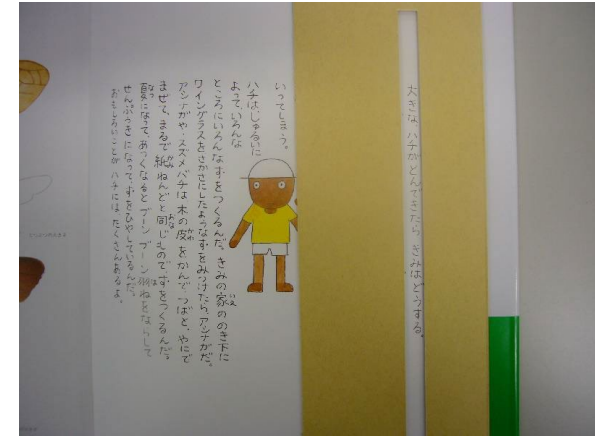 大きな ハチが とんできたら きみは どうする。
いって言う。
ハチは、しゅるいに
よって、いろんな
ところにいろんなすをつくるんだ。きみの家ののき下に
いえ
ワイングラスをさかさにしたようなすをみつけたら、アシナガだ。
アシナガや、スズメバチは 木の皮をかんで つばと、やにで
かわ
まぜて、まるで 紙ねんどと同じものですをつくるんだ。
かみ
おな
夏になって、あつくなると ブーン ブーン 羽ねをならして
なつ
は
せんぷうきになって、すをひやしているんだ。
おもしろいことが ハチには たくさんあるよ。